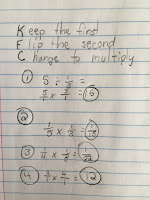 Keep the first
Flip the second
Change to multiply
① 5 ÷ 1/3 =
5/1 x 3/1 =
②
1/5 x 1/3 = 1/15
③ 1/4 x 1/8 = 1/32
④ 3/1 x 4/1 = 12